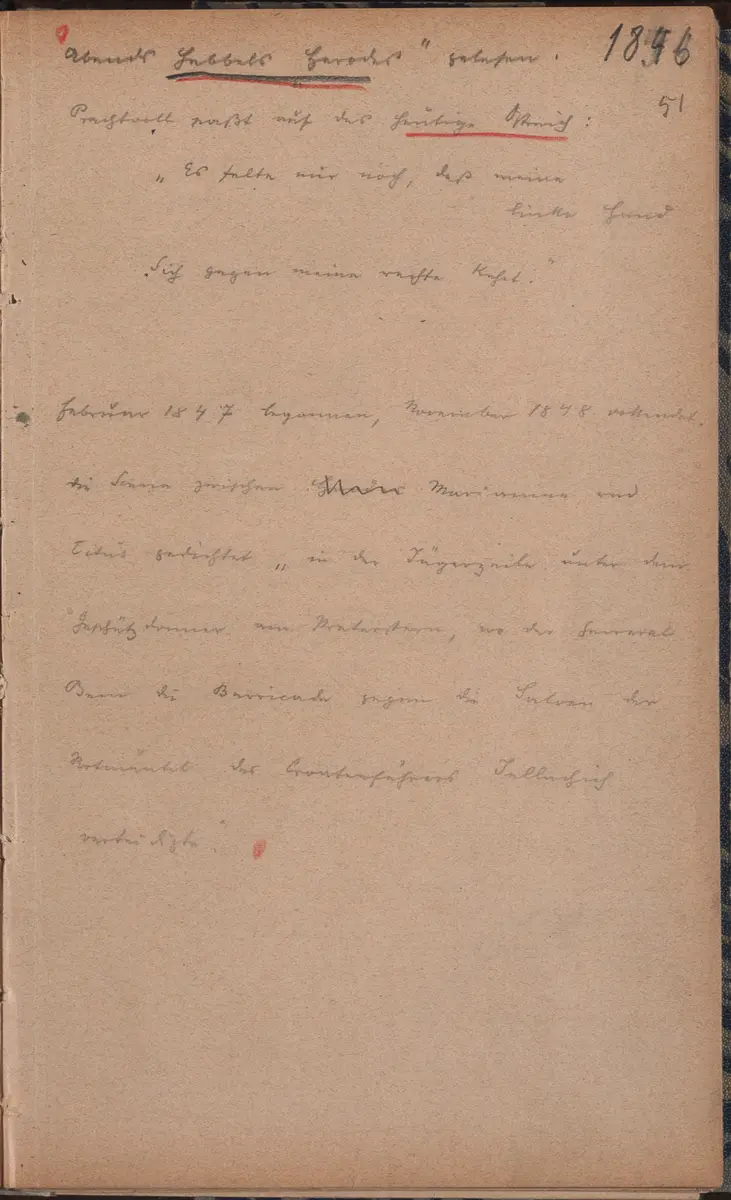 Abends Hebbels Herodes" gelesen. 1846
51
Prachtvoll paßt auf das heutige Östreich:
„Es felte nur noch, daß meine
linke Hand
Sich gegen meine rechte kehrt."
Februar 1847 begonnen, November 1848 vollendet.
die Scene zwischen Mariamne und
Titus gedichtet „in der Jägerzeile unter dem
Geschützdonner am Praterstern, wo der General
Bem die Barricade gegen die Salven der
Rotmäntel des Croatenführers Jellachich
verteidigte."